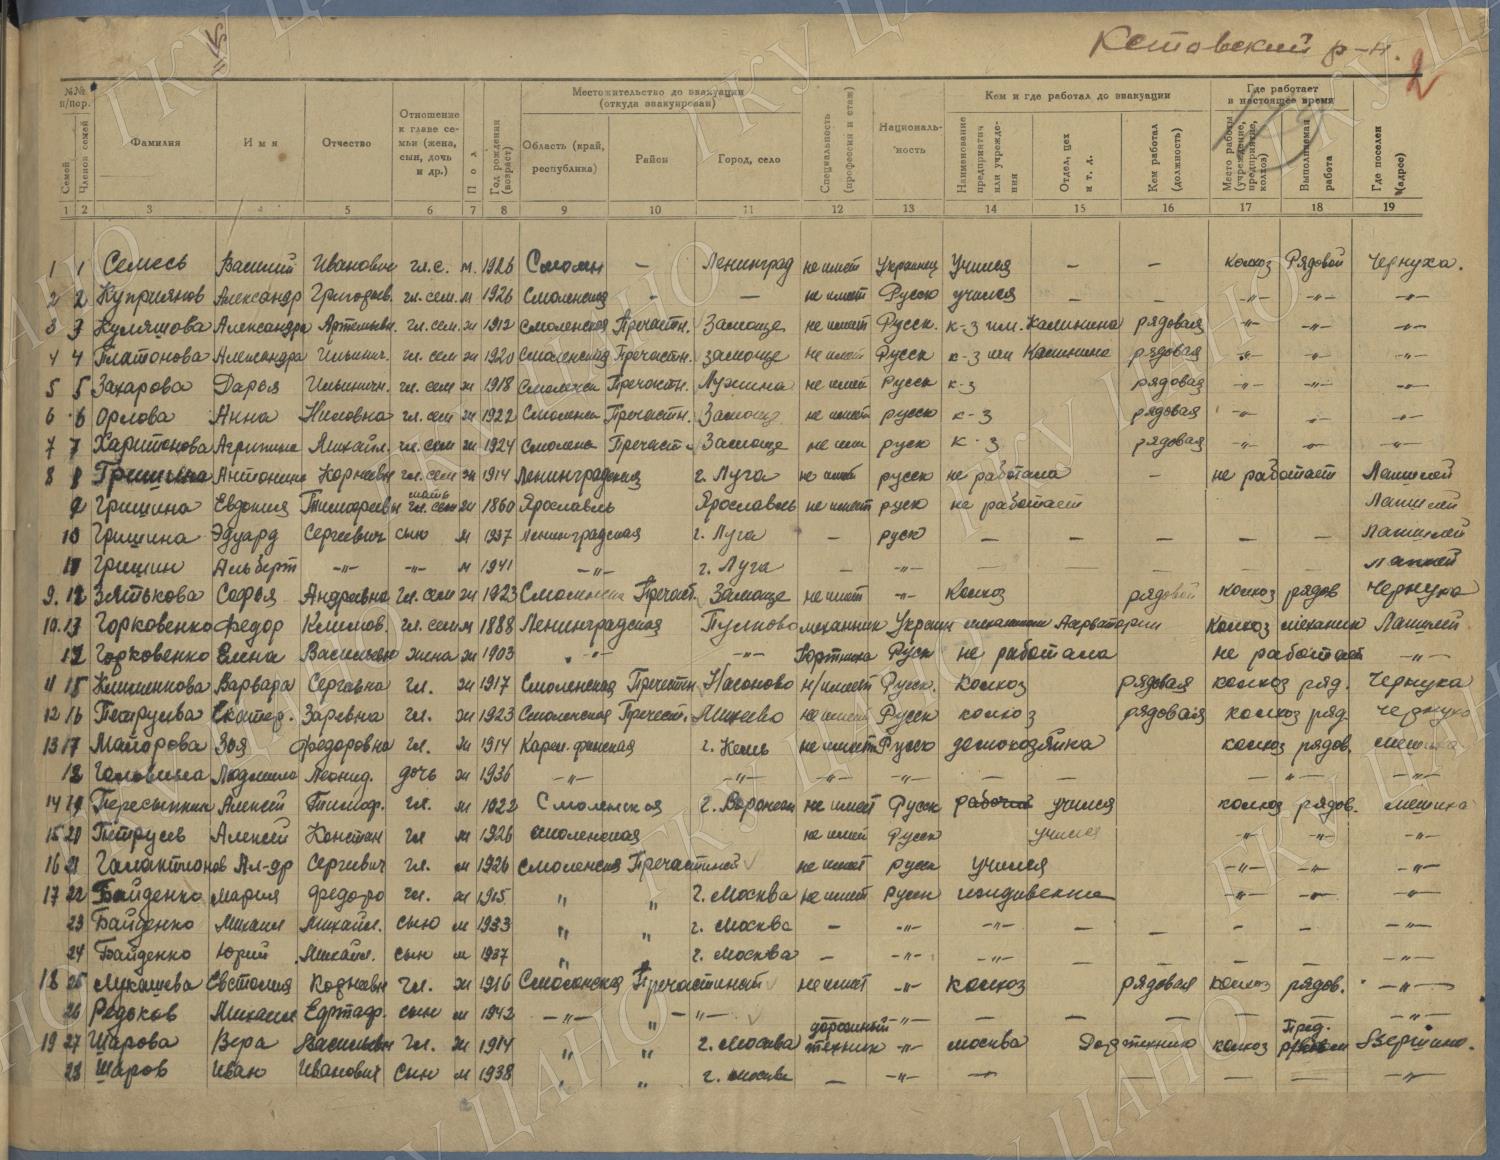 Кстовский р-н.
2
№№ п/пор.
Семей
Членов семей
Фамилия
Имя
Отчество
Отношение к главе семьи (жена, сын, дочь и др.)
Пол
Год рождения (возраст)
Местожительство до эвакуации (откуда эвакуирован)
Область (край, республика)
Район
Город, село
Специальность (профессия и стаж)
Националь-ность
Кем и где работал до эвакуации
Наименование предприятия или учреждения
Отдел, цех и т. д.
Кем работал (должность)
Где работает в настоящее время
Место работы (учреждение, предприятие, колхоз)
Выполняемая работа
Где поселен (адрес)
1 2 3 4 5 6 7 8 9 10 11 12 13 14 15 16 17 18 19
1 1 Семесь Василий Иванович гл.с. м. 1926 Смолен — Ленинград не имеет Украинец Учился — — колхоз Рядовой Чернуха.
2 2 Куприянов Александр Григорьев. гл. сем. м 1926 Смоленская — — не имеет Русск учился — — -"- -"- -"-
3 3 Кулешова Александра Артемьевн. гл. сем. ж 1912 Смоленская Пречистн. Замоще не имеет Русск. к-з им. Калинина рядовая -"- -"- -"-
4 4 Платонова Александра Ильинич. гл. сем ж 1920 Смоленская Пречистн. Замоще не имеет Русск к-з им Калинина рядовая -"- -"- -"-
5 5 Захарова Дарья Ильиничн. гл. сем ж 1918 Смоленск Пречистн. не имеет Русск к-з рядовая -"- -"- -"-
6 6 Орлова Анна Ниловна гл. сем ж 1922 Смоленск Пречистн. Замоще не имеет русск к-з рядовая -"- -"- -"-
7 7 Харитонова Агрипина Михайл. гл. сем ж 1924 Смоленск Пречист. Замоще не име русск к-з рядовая -"- -"- -"-
8 8 Гришина Антонина Корнеевн гл. сем ж 1914 Ленинградская г. Луга не имеет русск не работала — не работает Лапшлей
9 Гришина Евдокия мать гл. сем ж 1860 Ярославль Ярославль не имеет русск не работает Лапшлей
10 Гришина Эдуард Сергеевич сын м 1937 Ленинградская г. Луга — русск — — — — — Лапшлей
11 Гришин Альберт -"- -"- м 1941 -"- г. Луга — -"- — — — — — Лапшлей
9. 12 Зятькова Софья Андреевна гл. сем ж 1923 Смоленская Пречист. Замоще не имеет -"- Колхоз рядовой колхоз рядов Чернуха
10. 13 Горковенко Федор Климов. гл. семм 1888 Ленинградская Пулково механник Украин Аэрватории Колхоз механик Лапшлей
14 Горковенко Елена Васильевн жена ж 1903 -"- -"- Портниха Русск не работала не работает -"-
11 15 Клименкова Варвара Сергеевна гл. ж 1917 Смоленская Пречистн Насоново н/имеет Русск. Колхоз рядовая колхоз ряд. Чернуха
12 16 Петруева Екатер. Заревна гл. ж 1923 Смоленская Пречист. Михеево не имеет Русск колхоз рядовая колхоз ряд. Чернуха
13 17 Майорова Зоя Федоровна гл. ж 1914 Карел. финская г. Кемь не имеет Русск домохозяйка колхоз рядов.
18 Головина Людмила Леонид. дочь ж 1936 -"- -"- -"- -"- — — — -"- -"-
14 19 Пересыпкин Алексей Тимоф. гл. м 1922 Смоленская не имеет Русск рабочий учился колхоз рядов.
15 20 Петруев Алексей Констан гл м 1926 смоленская не имей Русск учился -"- -"- -"-
16 21 Галактионов Ал-др Сергеевич гл. м 1926 смоленская Пречистиной не имеет русск учился -"- -"- -"-
17 22 Байденко Мария Федоро гл. ж 1915 " " г. Москва не имеет Русск иждивенка -"- -"- -"-
23 Байденко Михаил Михайл. сын м 1933 " " г. Москва — -"- -"- — — - — -"-
24 Байденко Юрий Михайл. сын м 1937 " " г. Москва — -"- -"- — — — — -"-
18 25 Лукашева Евстолия Корнеевн гл. ж 1916 Смоленская Пречистиной не имеет -"- колхоз рядовая колхоз рядов. -"-
26 Редьков Михаил сын м 1942 -"- " -"- -"- — — — — — -"-
19 27 Шарова Вера Васильевн гл. ж 1914 " " г. Москва дорожный техник -"- Москва Дортехник колхоз Пред.
28 Шаров Иван Иванович сын м 1938 " " г. Москва — -"- — — — -"-